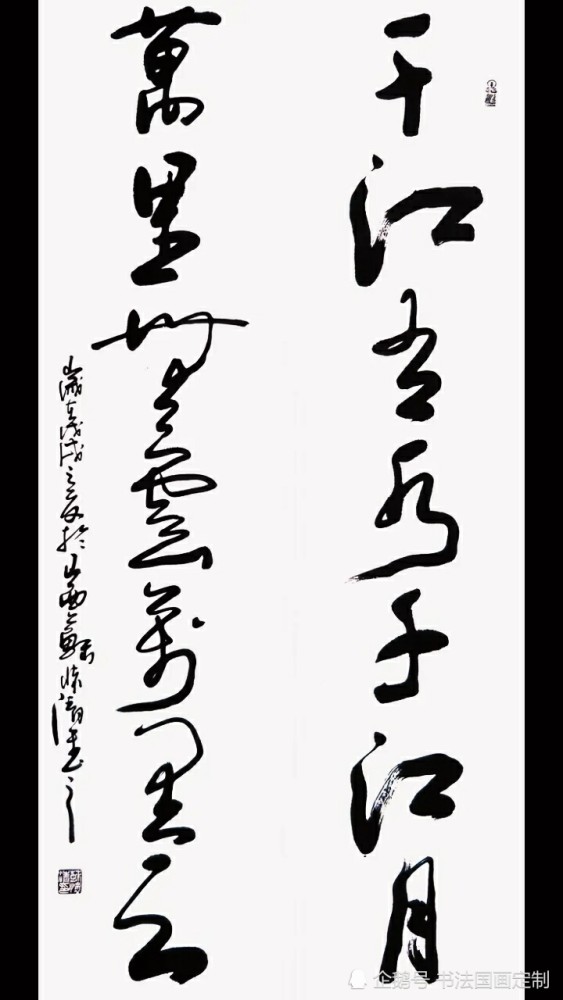 千江有水千江月
萬里無雲萬里天
歲在戊戌之夏於山西
企鹅号 书法国画定制